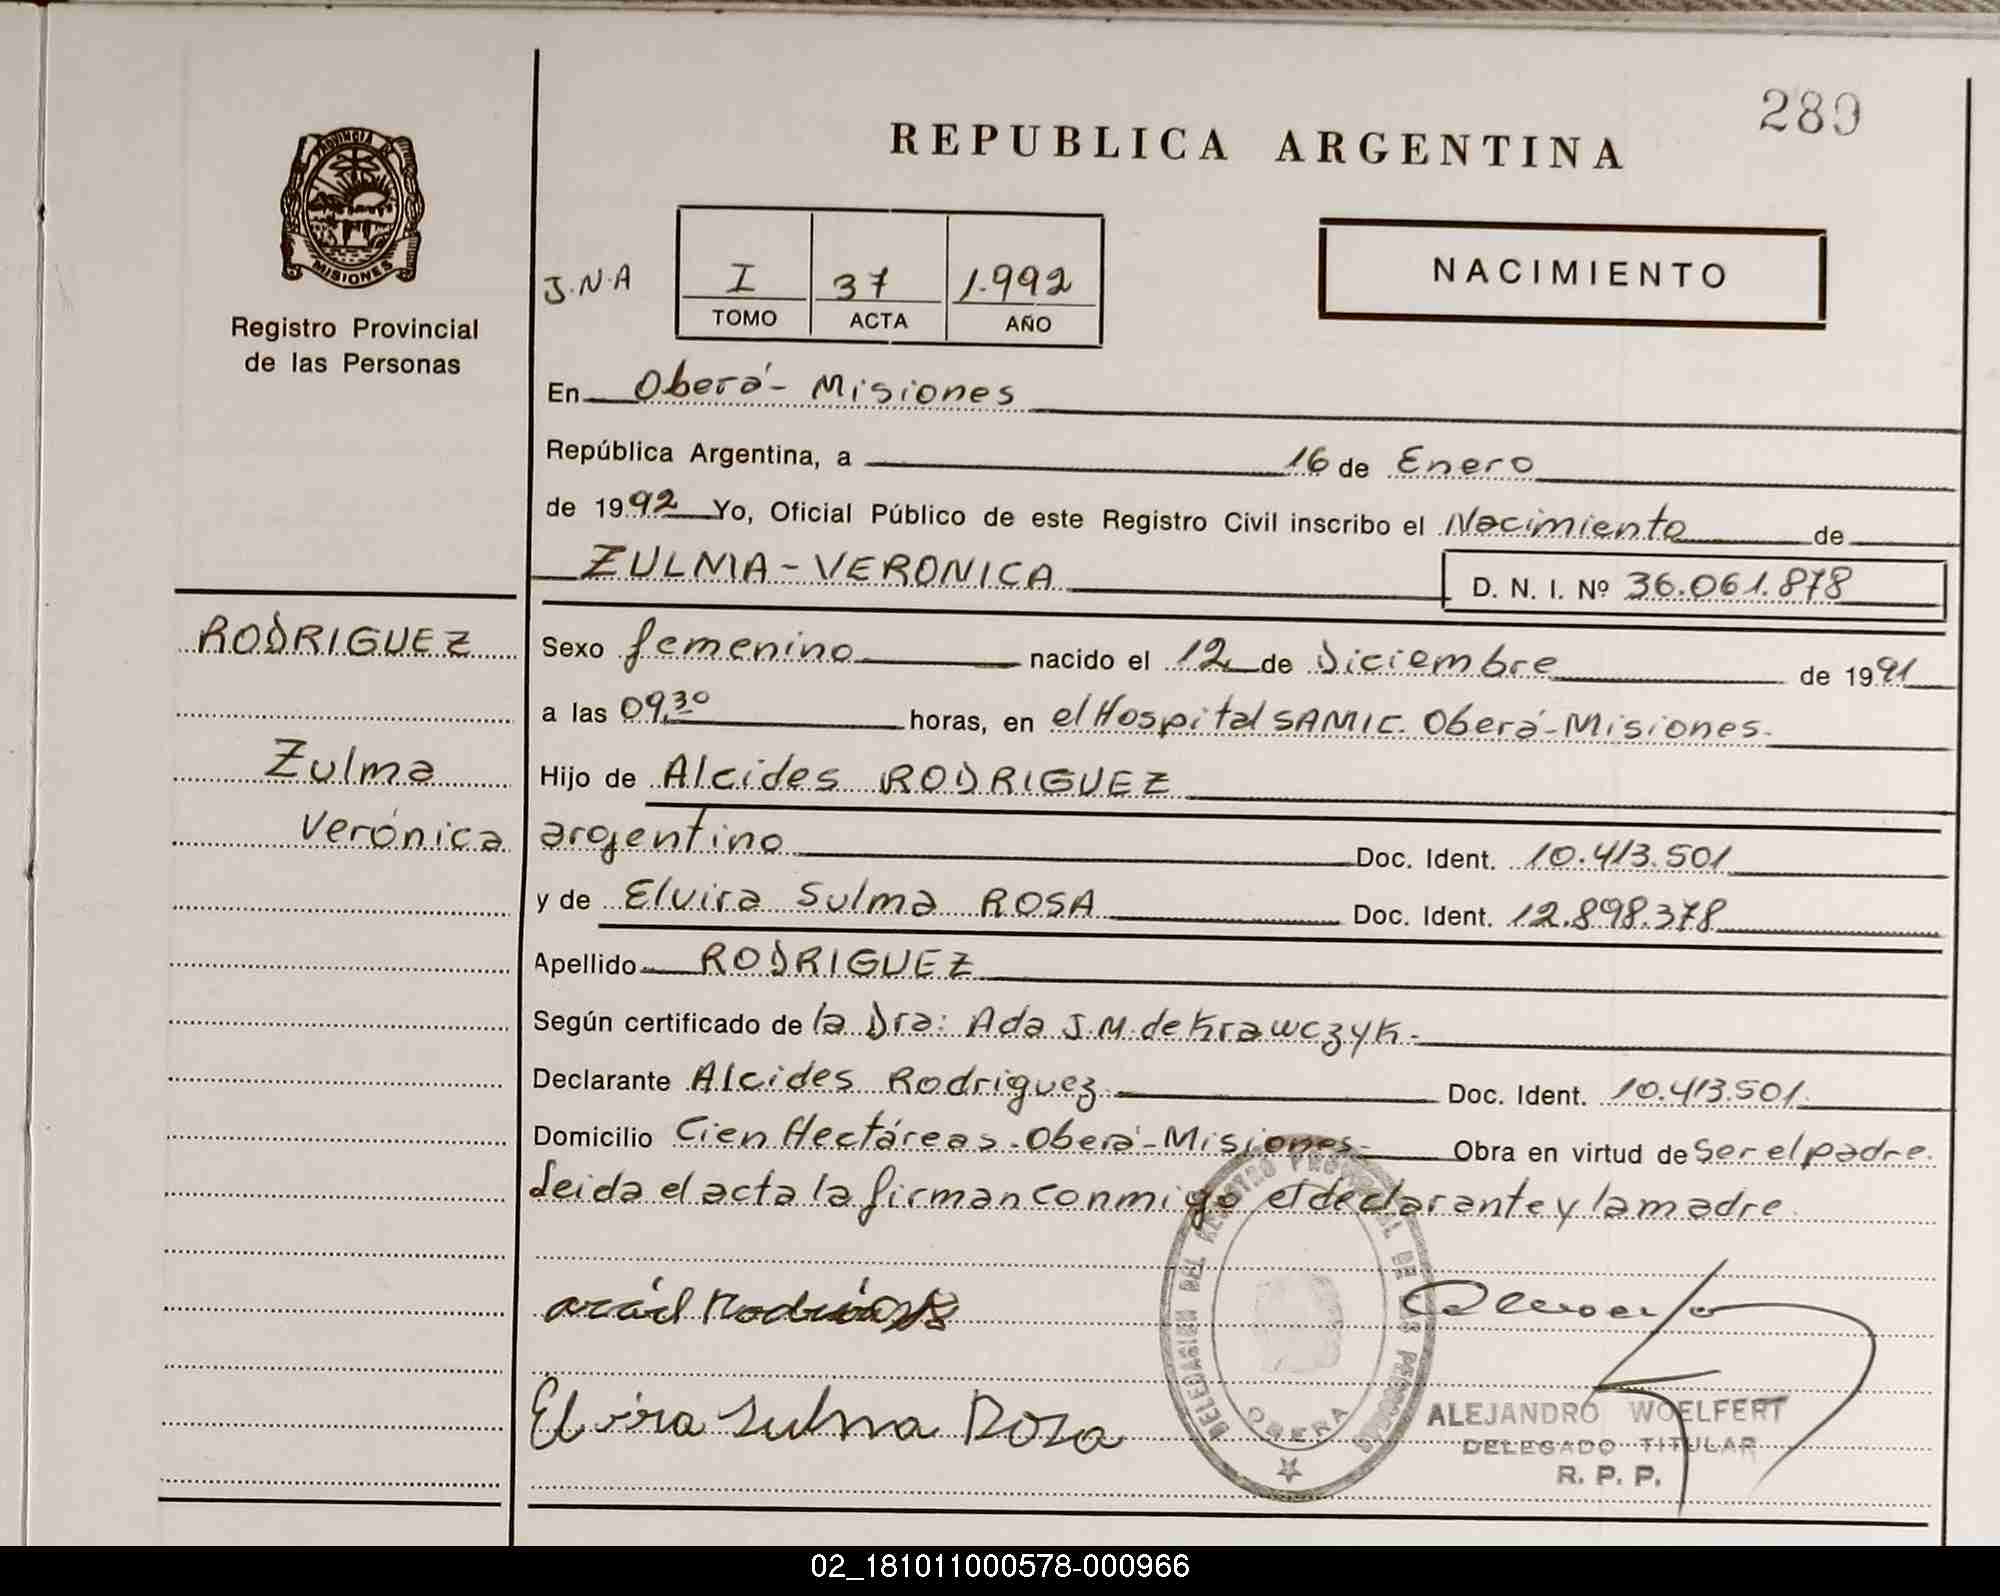 289
REPUBLICA ARGENTINA
PROVINCIA DE
MISIONES
Registro Provincial
de las Personas
J.N.A
I 37 1.992
TOMO ACTA AÑO
NACIMIENTO
En Oberá - Misiones
República Argentina, a 16 de Enero
de 1992 Yo, Oficial Público de este Registro Civil inscribo el Nacimiento de
ZULMA - VERONICA D. N. I. Nº 36.061.878
RODRIGUEZ
Zulma
Verónica
Sexo femenino nacido el 12 de Diciembre de 1991
a las 09,30 horas, en el Hospital SAMIC. Oberá - Misiones.
Hijo de Alcides RODRIGUEZ
argentino Doc. Ident. 10.413.501
y de Elvira Sulma ROSA Doc. Ident. 12.898.378
Apellido RODRIGUEZ
Según certificado de la Dra: Ada J.M. de Krawczyk.
Declarante Alcides Rodriguez Doc. Ident. 10.413.501.
Domicilio Cien Hectáreas - Oberá - Misiones - Obra en virtud de Ser el padre.
Leida el acta la firman conmigo el declarante y la madre.
DELEGACION DEL REGISTRO PROVINCIAL DE LAS PERSONAS
OBERA
Elvira Sulma Roza
ALEJANDRO WOELFERT
DELEGADO TITULAR
R. P. P.
02_181011000578-000966